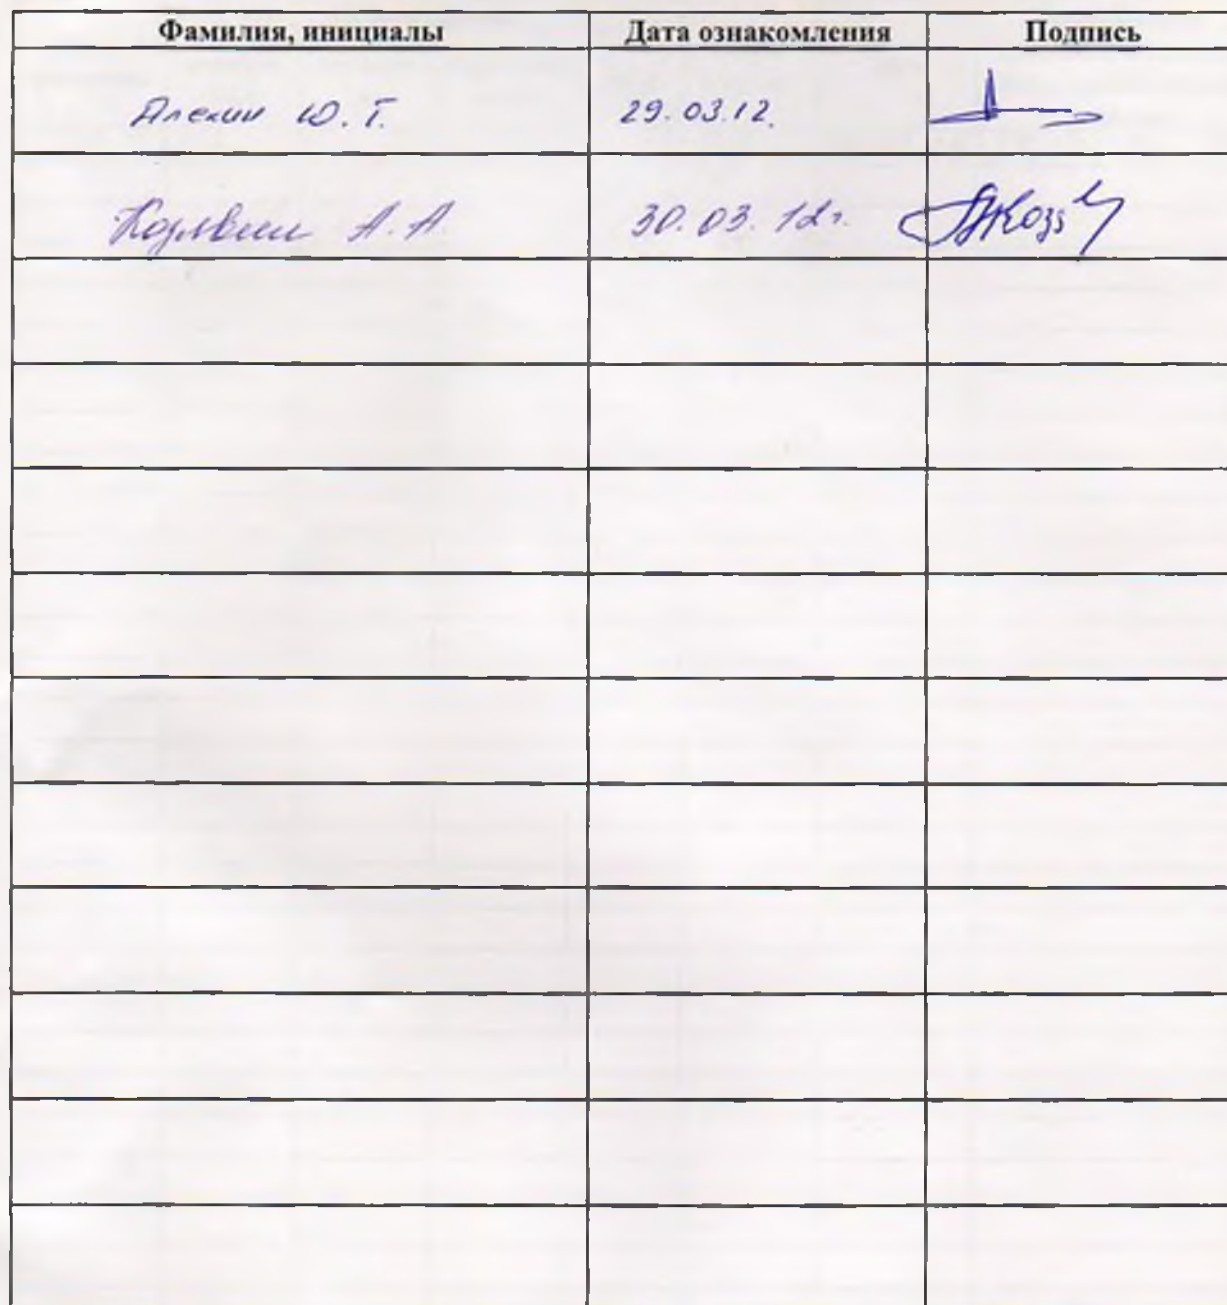 Фамилия, инициалы Дата ознакомления Подпись
Алехин Ю. Г. 29.03.12.
А. А. 30.03.12г.